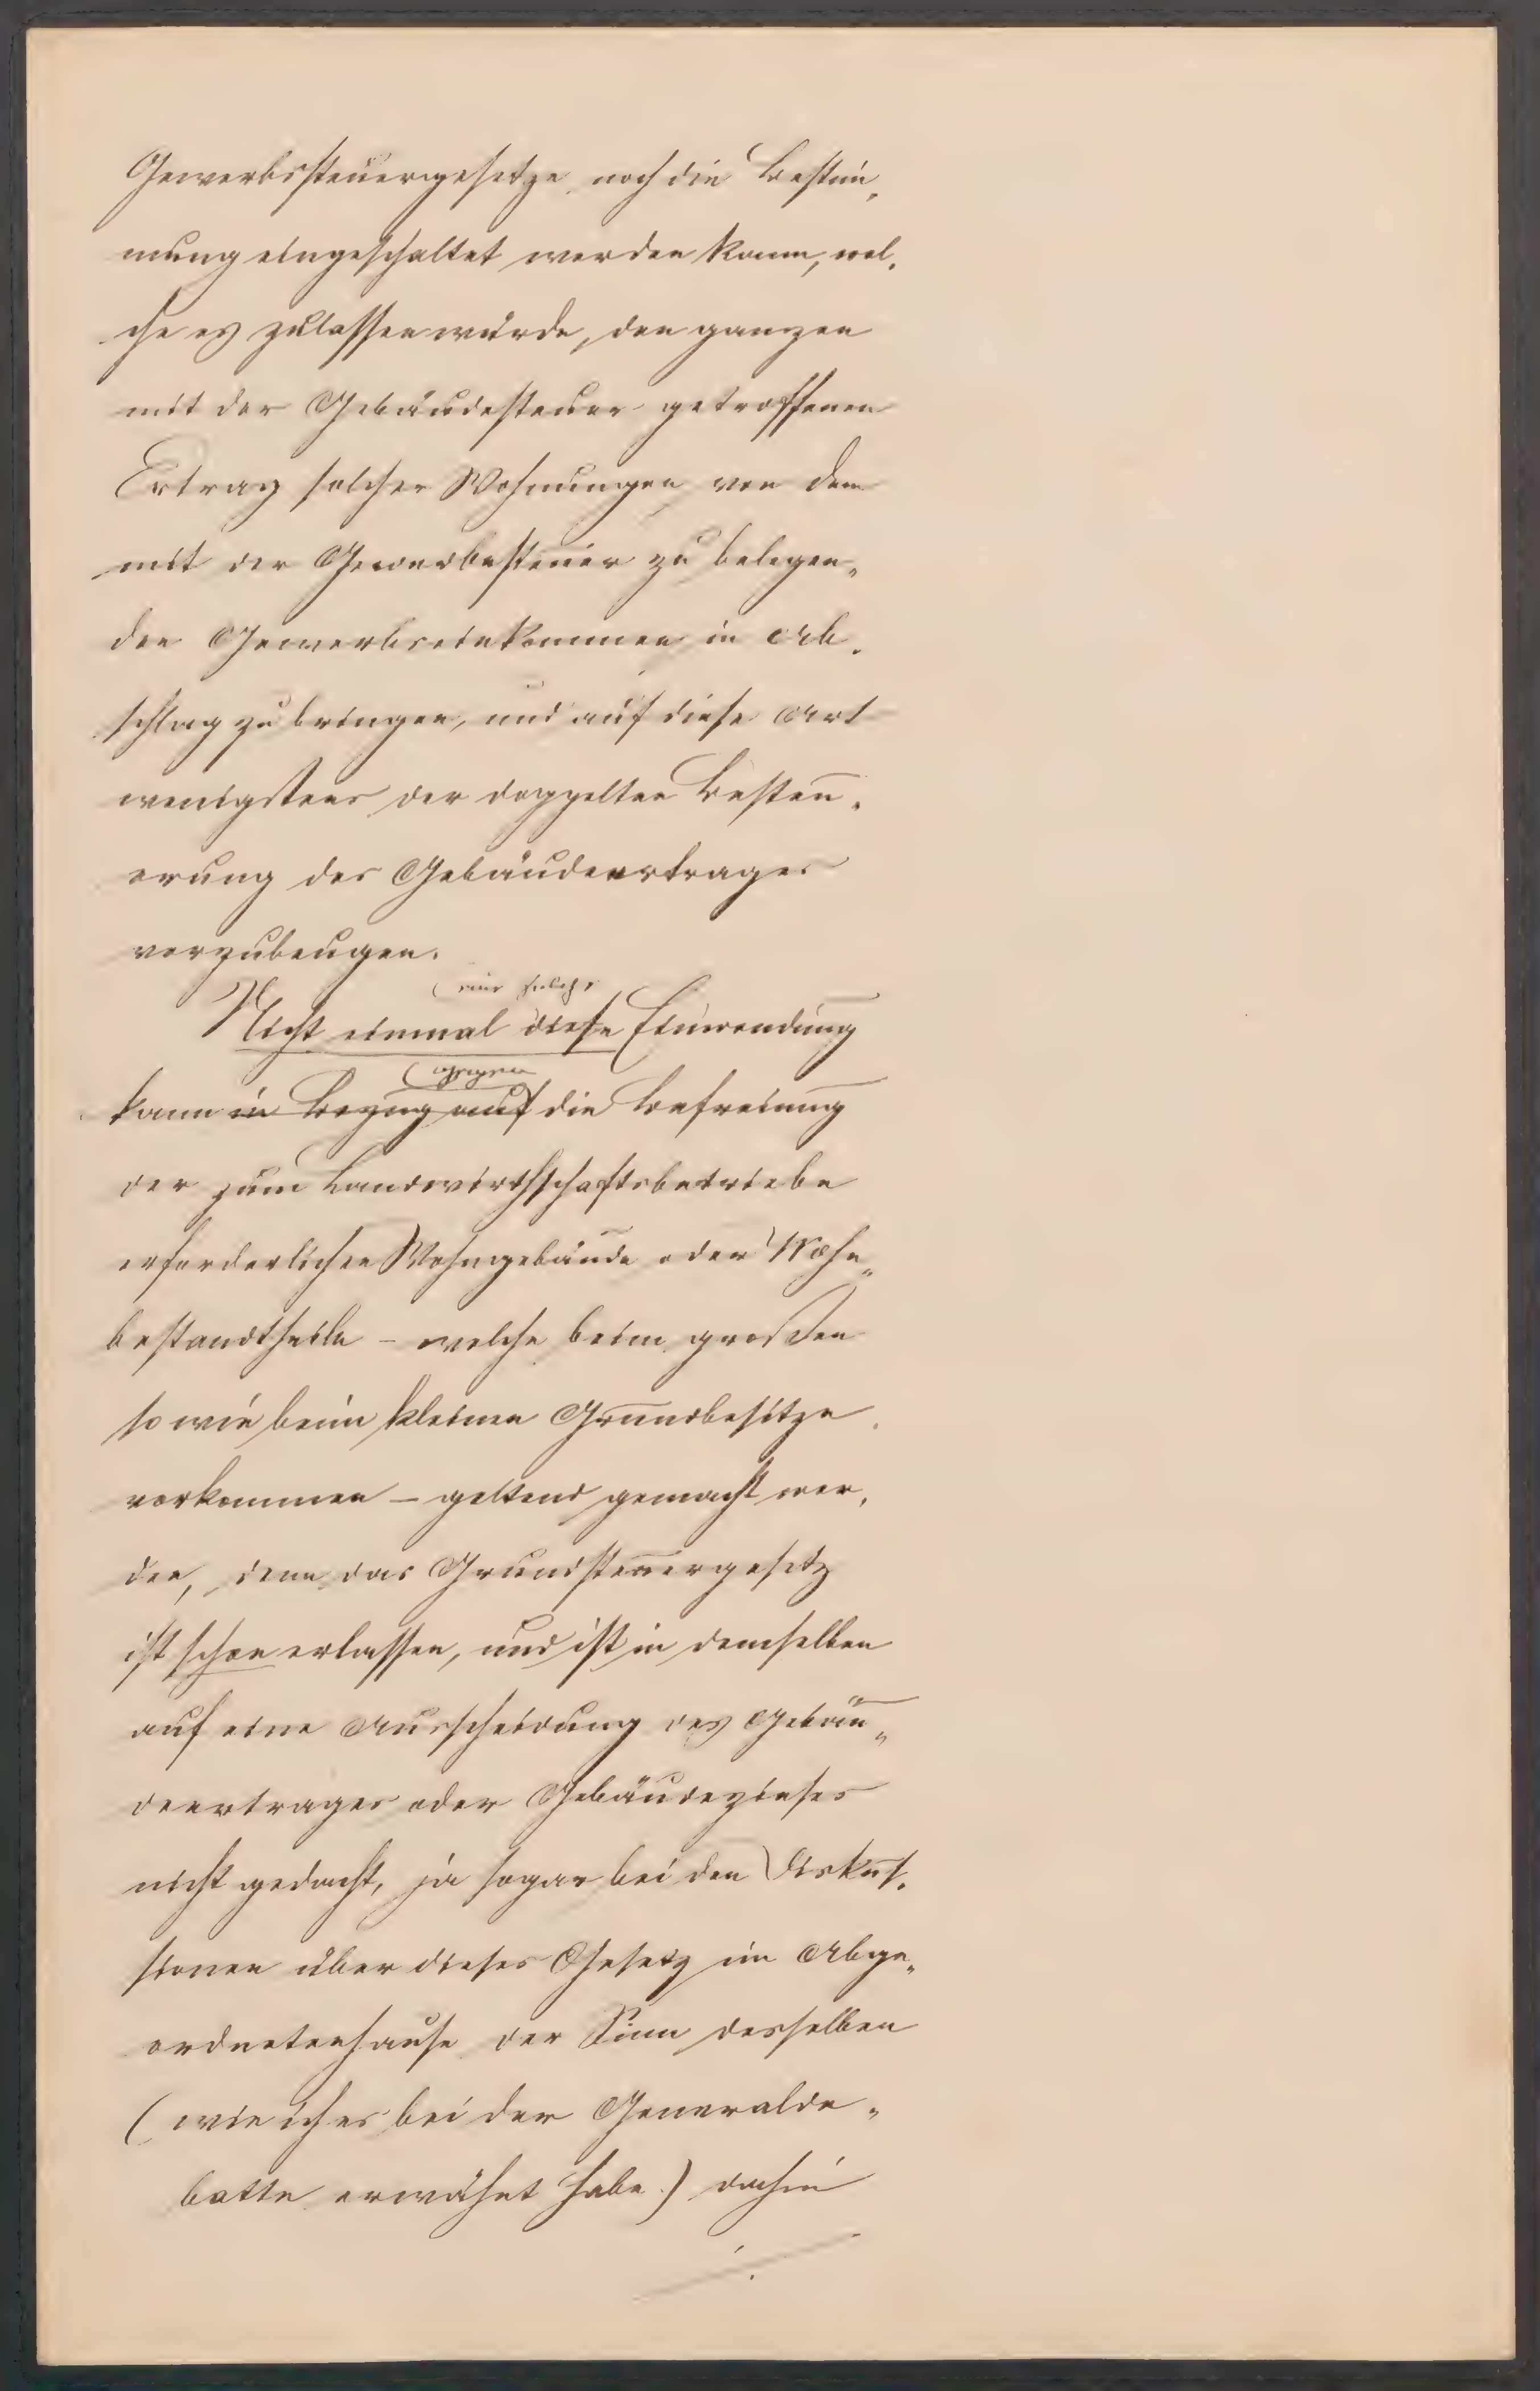 Gewerbssteuergesetze noch die Bestim„
mung eingeschaltet werden kann, wel„
che es zulassen würde, den ganzen
mit der Gebäudesteuer getroffenen
Ertrag solcher Wohnungen von dem
mit der Gewerbesteuer zu belegen„
den Gewerbseinkommen in Ab„
schlag zu bringen, und auf diese Art
wenigstens der doppelten Besteu„
erung des Gebäudeertrages
vorzubeugen.
eine solche
Nicht einmal diese Einwendung
gegen
kann in Bezug auf die Befreiung
der zum Landwirthschaftsbetriebe
erforderlichen Wohngebäude oder Wohn„
bestandtheile – welche beim großen
so wie beim kleinen Grundbesitze
vorkommen – geltend gemacht wer„
den, denn das Grundsteuergesetz
ist schon erlassen, und ist in demselben
auf eine Ausscheidung des Gebäu„
deertrages oder Gebäudezinses
nicht gedacht, ja sogar bei den Diskus„
sionen über dieses Gesetz im Abge„
ordnetenhause der Sinn desselben
(wie ich es bei der Generalde„
batte erwähnt habe) dahin